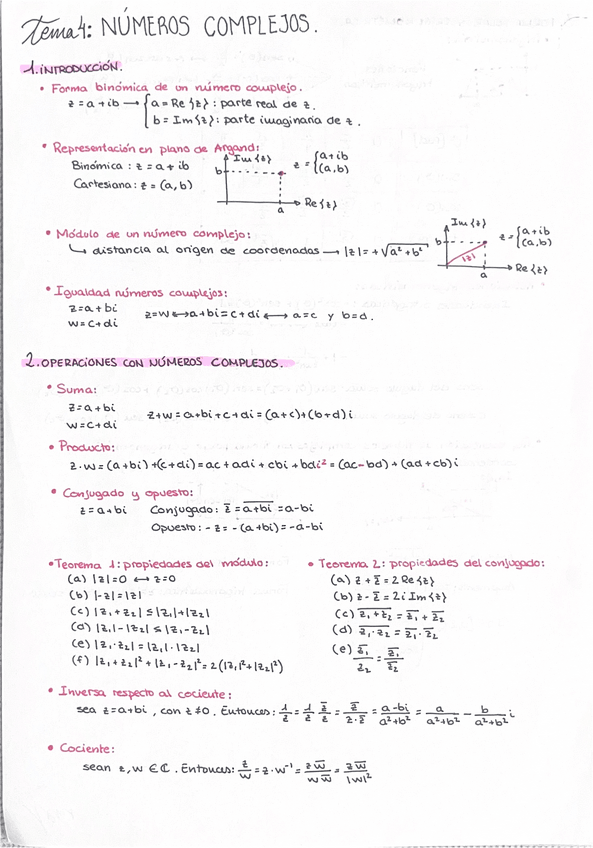 Tema 4: NÚMEROS COMPLEJOS.
1. INTRODUCCIÓN.
• Forma binómica de un número complejo.
z = a + ib → { a = Re{z} : parte real de z.
b = Im{z} : parte imaginaria de z.
• Representación en plano de Argand:
Binómica : z = a + ib
Cartesiana : z = (a, b)
Im{z}
b
a
Re{z}
z = { a + ib
(a, b)
• Módulo de un número complejo:
↳ distancia al origen de coordenadas → |z| = +√a² + b²
Im{z}
b
|z|
a
Re{z}
z = { a + ib
(a, b)
• Igualdad números complejos:
z = a + bi
w = c + di
z = w ↔ a + bi = c + di ↔ a = c y b = d.
2. OPERACIONES CON NÚMEROS COMPLEJOS.
• Suma:
z = a + bi
w = c + di
z + w = a + bi + c + di = (a + c) + (b + d) i
• Producto:
z · w = (a + bi) + (c + di) = ac + adi + cbi + bdi² = (ac - bd) + (ad + cb) i
• Conjugado y opuesto:
z = a + bi Conjugado: z̅ = a̅+̅b̅i̅ = a - bi
Opuesto: - z = - (a + bi) = - a - bi
• Teorema 1: propiedades del módulo:
(a) |z| = 0 ↔ z = 0
(b) |-z| = |z|
(c) |z₁ + z₂| ≤ |z₁| + |z₂|
(d) |z₁| - |z₂| ≤ |z₁ - z₂|
(e) |z₁ · z₂| = |z₁| · |z₂|
(f) |z₁ + z₂|² + |z₁ - z₂|² = 2(|z₁|² + |z₂|²)
• Teorema 2: propiedades del conjugado:
(a) z + z̅ = 2 Re{z}
(b) z - z̅ = 2i Im{z}
(c) z̅₁̅ ̅+̅ ̅z̅₂̅ = z̅₁ + z̅₂
(d) z̅₁̅ ̅·̅ ̅z̅₂̅ = z̅₁ · z̅₂
(e) z̅₁/z₂ = z̅₁/z̅₂
• Inversa respecto al cociente:
sea z = a + bi , con z ≠ 0 . Entonces: 1/z = 1/z z̅/z̅ = z̅/z · z̅ = a - bi/a² + b² = a/a² + b² - b/a² + b² i
• Cociente:
sean z, w ∈ ℂ . Entonces: z/w = z · w⁻¹ = z w̅/w w̅ = z w̅/|w|²